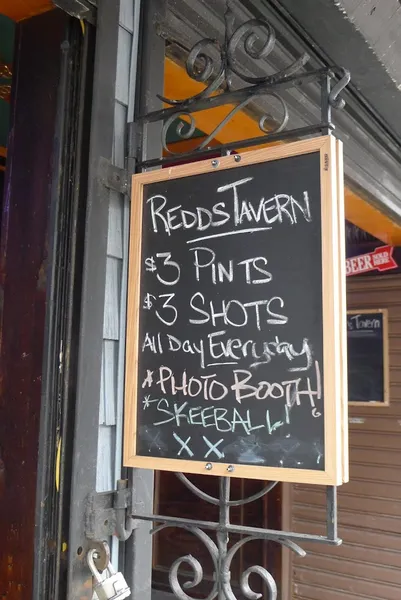 REDDS TAVERN
$3 PINTS
$3 SHOTS
All Day Everyday
* PHOTO BOOTH!
* SKEEBALL!
X X
BEER SOLD HERE
Tavern